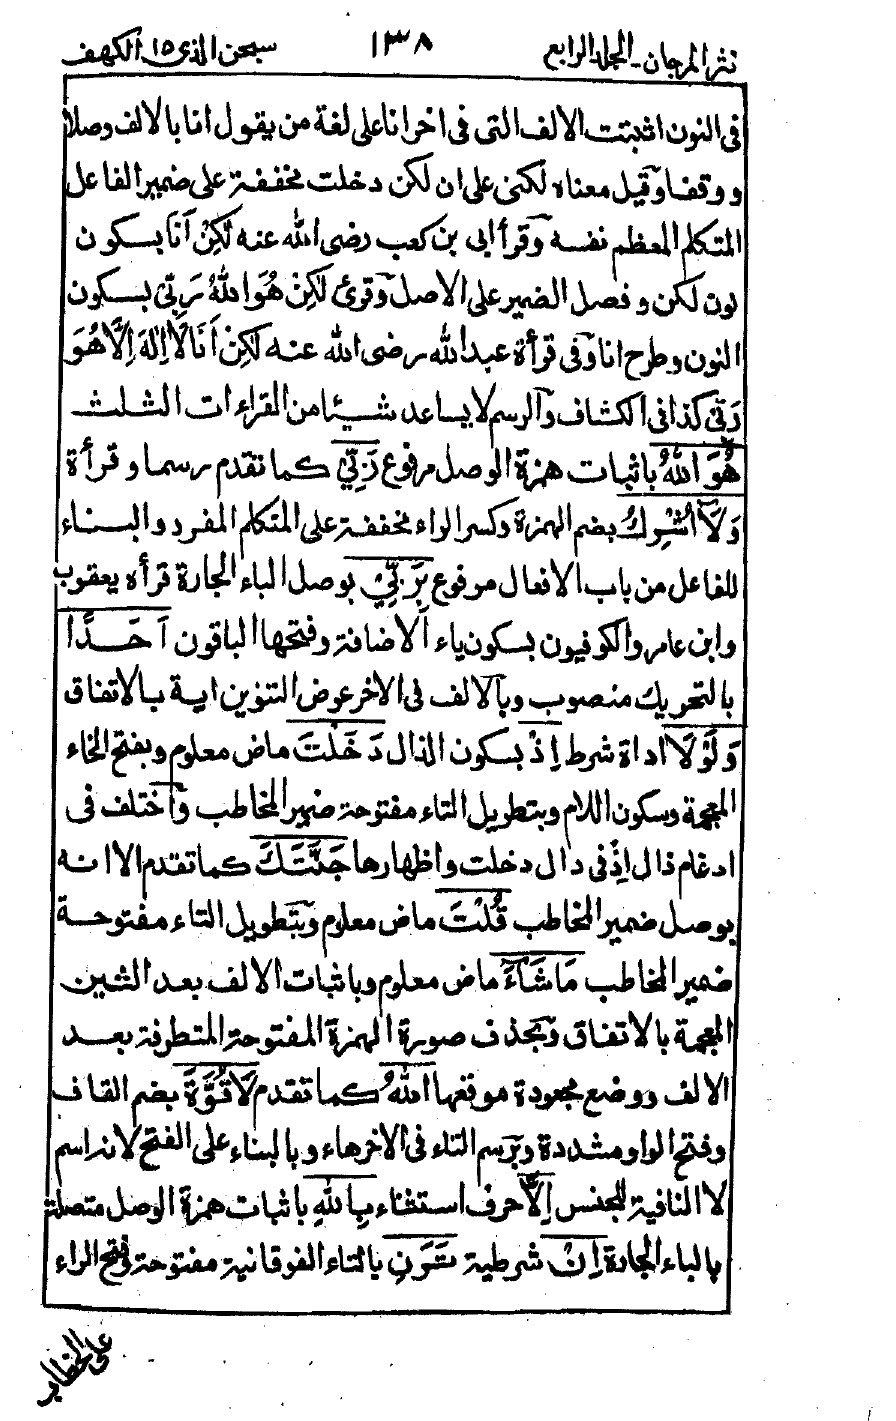 نثر المرجان۔ الجلد الرابع ١٣٨ سبحن الذی ١٥ الکهف
فی النون اثبتت الالف التی فی اخر انا علی لغة من یقول انا بالالف وصلا
ووقفا وقیل معناه لکنی علی ان لکن دخلت مخففة علی ضمیر الفاعل
المتکلم المعظم نفسه وقرأ ابی بن کعب رضی الله عنه لٰکِنْ اَنَا بسکون
نون لکن وفصل الضمیر علی الاصل وقرئ لٰکِنْ هُوَ اللّٰهُ رَبِّیْ بسکون
النون وطرح انا وفی قرأة عبد الله رضی الله عنه لٰکِنْ اَنَا لَآ اِلٰهَ اِلَّا هُوَ
رَبِّیْ کذا فی الکشاف والرسم لا یساعد شیئا من القراءات الثلث
هُوَ اللّٰهُ باثبات همزة الوصل مرفوع رَبِّیْ کما تقدم رسما وقرأة
وَلَآ اُشْرِكُ بضم الهمزة وکسر الراء مخففة علی المتکلم المفرد والبناء
للفاعل من باب الافعال مرفوع بِرَبِّیْ بوصل الباء الجارة قرأه یعقوب
وابن عامر والکوفیون بسکون یاء الاضافة وفتحها الباقون اَحَدًا
بالتحریك منصوب وبالالف فی الاخر عوض التنوین ایة بالاتفاق
وَلَوْلَا اداة شرط اِذْ بسکون الذال دَخَلْتَ ماض معلوم وبفتح الخاء
المعجمة وسکون اللام وبتطویل التاء مفتوحة ضمیر المخاطب واختلف فی
ادغام ذال اِذْ فی دال دخلت واظهارها جَنَّتَكَ کما تقدم الا انه
بوصل ضمیر المخاطب قُلْتَ ماض معلوم وبتطویل التاء مفتوحة
ضمیر المخاطب مَا شَآءَ ماض معلوم وباثبات الالف بعد الشین
المعجمة بالاتفاق وبحذف صورة الهمزة المفتوحة المتطرفة بعد
الالف ووضع مجعودة موقعها اللّٰهُ کما تقدم لَا قُوَّةَ بضم القاف
وفتح الواو مشددة وبرسم التاء فی الاخر هاء وبالبناء علی الفتح لانه اسم
لا النافیة للجنس اِلَّا حرف استثناء بِاللّٰهِ باثبات همزة الوصل متصلة
بالباء الجارة اِنْ شرطیة تَرَنِ بالتاء الفوقانیة مفتوحة وفتح الراء
علی الخطاب